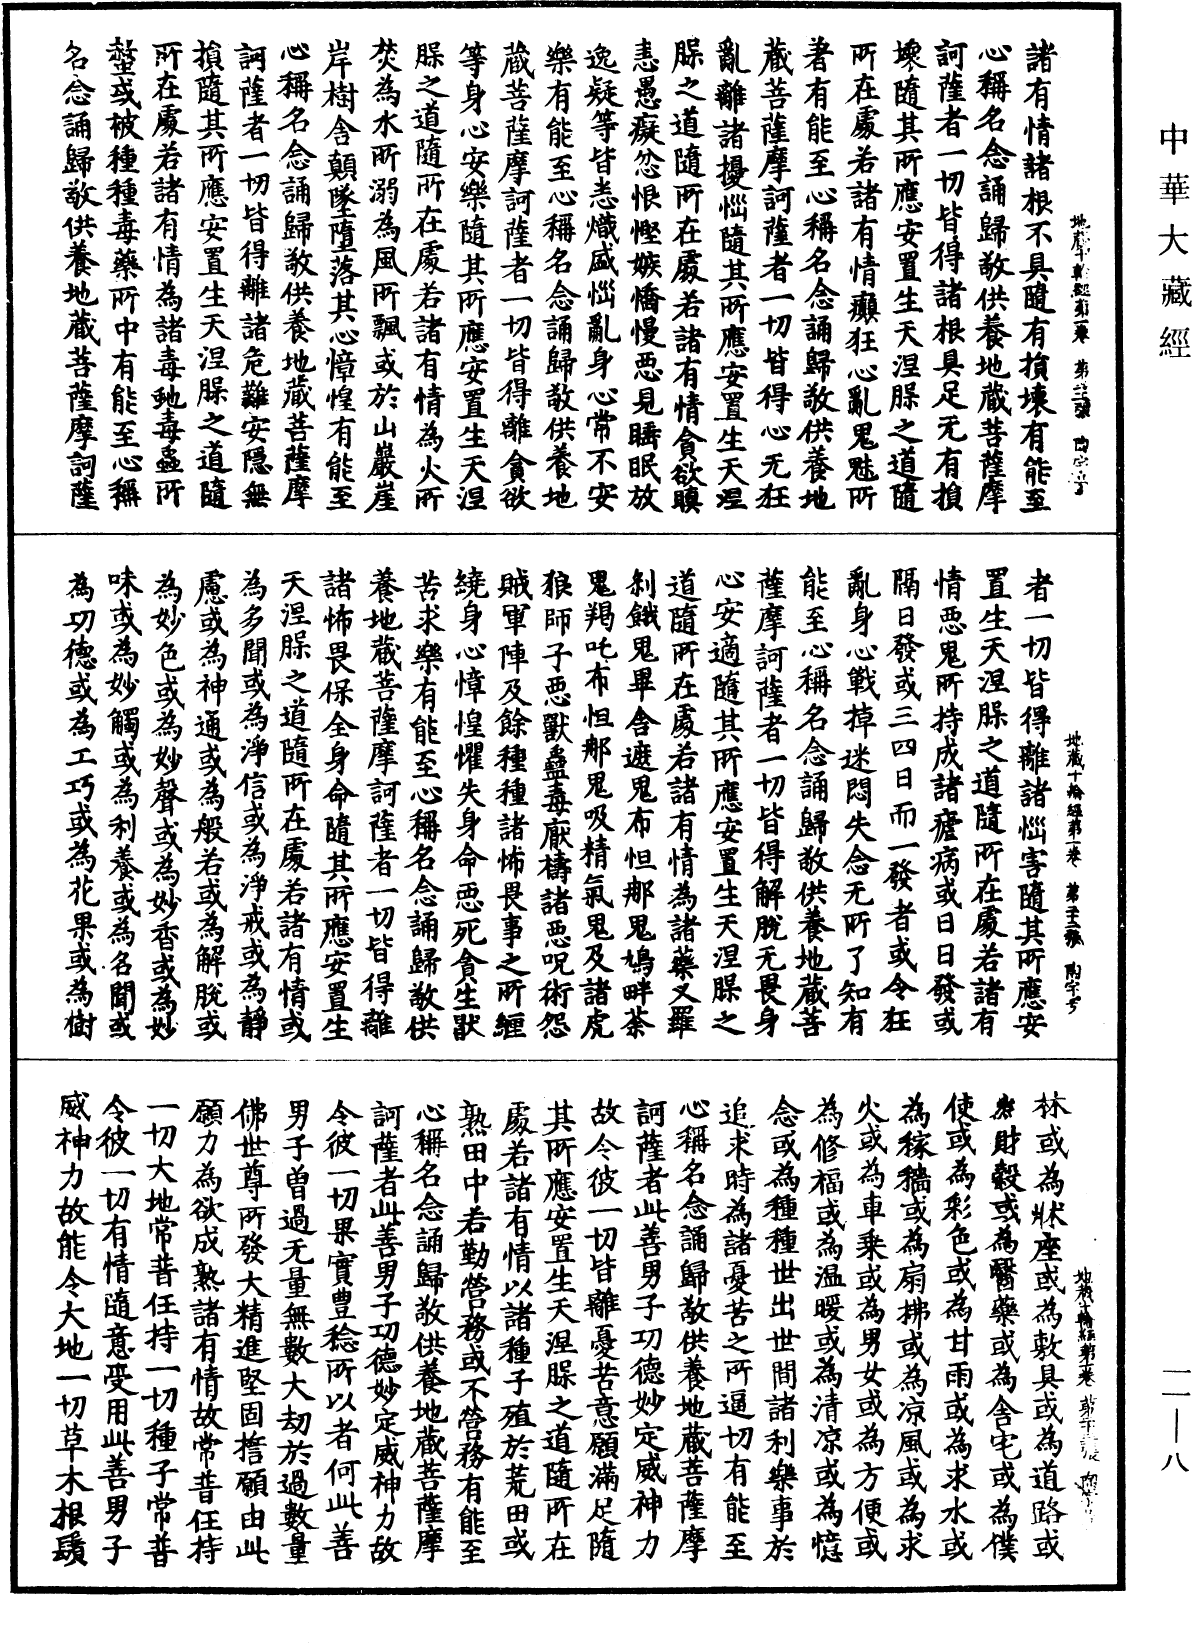 中華大藏經
諸有情諸根不具隨有損壞有能至
心稱名念誦歸敬供養地藏菩薩摩
訶薩者一切皆得諸根具足无有損
壞隨其所應安置生天涅脲之道隨
所在處若諸有情癲狂心亂鬼魅所
著有能至心稱名念誦歸敬供養地
藏菩薩摩訶薩者一切皆得心无狂
亂離諸擾惱隨其所應安置生天涅
脲之道隨所在處若諸有情貪欲瞋
恚愚癡忿恨慳嫉憍慢惡見睡眠放
逸疑等皆恚熾盛惱亂身心常不安
樂有能至心稱名念誦歸敬供養地
藏菩薩摩訶薩者一切皆得離貪欲
等身心安樂隨其所應安置生天涅
脲之道隨所在處若諸有情為火所
焚為水所溺為風所飄或於山巖崖
岸樹舍顛墜墮落其心慞惶有能至
心稱名念誦歸敬供養地藏菩薩摩
訶薩者一切皆得離諸危難安隱無
損隨其所應安置生天涅脲之道隨
所在處若諸有情為諸毒虵毒蟲所
螫或被種種毒藥所中有能至心稱
名念誦歸敬供養地藏菩薩摩訶薩
地藏十輪經第一卷
者一切皆得離諸惱害隨其所應安
置生天涅脲之道隨所在處若諸有
情惡鬼所持成諸瘧病或日日發或
隔日發或三四日而一發者或令狂
亂身心戰掉迷悶失念无所了知有
能至心稱名念誦歸敬供養地藏菩
薩摩訶薩者一切皆得解脫无畏身
心安適隨其所應安置生天涅脲之
道隨所在處若諸有情為諸藥叉羅
剎餓鬼畢舍遮鬼布怛那鬼鳩畔荼
鬼羯吒布怛那鬼吸精氣鬼及諸虎
狼師子惡獸蠱毒厭禱諸惡呪術怨
賊軍陣及餘種種諸怖畏事之所纏
繞身心慞惶懼失身命惡死貪生猒
苦求樂有能至心稱名念誦歸敬供
養地藏菩薩摩訶薩者一切皆得離
諸怖畏保全身命隨其所應安置生
天涅脲之道隨所在處若諸有情或
為多聞或為淨信或為淨戒或為靜
慮或為神通或為般若或為解脫或
為妙色或為妙聲或為妙香或為妙
味或為妙觸或為利養或為名聞或
為功德或為工巧或為花果或為樹
林或為牀座或為敷具或為道路或
為財穀或為醫藥或為舍宅或為僕
使或為彩色或為甘雨或為求水或
為稼穡或為扇拂或為凉風或為求
火或為車乘或為男女或為方便或
為修福或為温暖或為清凉或為憶
念或為種種世出世間諸利樂事於
追求時為諸憂苦之所逼切有能至
心稱名念誦歸敬供養地藏菩薩摩
訶薩者此善男子功德妙定威神力
故令彼一切皆離憂苦意願滿足隨
其所應安置生天涅脲之道隨所在
處若諸有情以諸種子殖於荒田或
熟田中若勤營務或不營務有能至
心稱名念誦歸敬供養地藏菩薩摩
訶薩者此善男子功德妙定威神力故
令彼一切果實豐稔所以者何此善
男子曾過无量無數大劫於過數量
佛世尊所發大精進堅固擔願由此
願力為欲成熟諸有情故常普任持
一切大地常普任持一切種子常普
令彼一切有情隨意受用此善男子
威神力故能令大地一切草木根鬚
一一—八